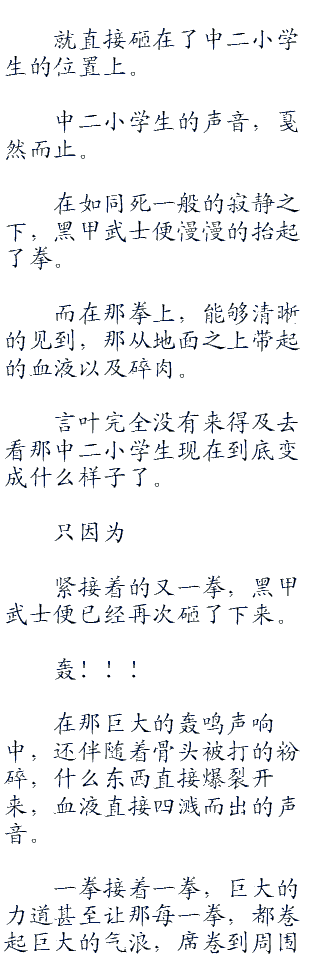 就直接砸在了中二小学
生的位置上。
中二小学生的声音，戛
然而止。
在如同死一般的寂静之
下，黑甲武士便慢慢的抬起
了拳。
而在那拳上，能够清晰
的见到，那从地面之上带起
的血液以及碎肉。
言叶完全没有来得及去
看那中二小学生现在到底变
成什么样子了。
只因为
紧接着的又一拳，黑甲
武士便已经再次砸了下来。
轰！！！
在那巨大的轰鸣声响
中，还伴随着骨头被打的粉
碎，什么东西直接爆裂开
来，血液直接四溅而出的声
音。
一拳接着一拳，巨大的
力道甚至让那每一拳，都卷
起巨大的气浪，席卷到周围